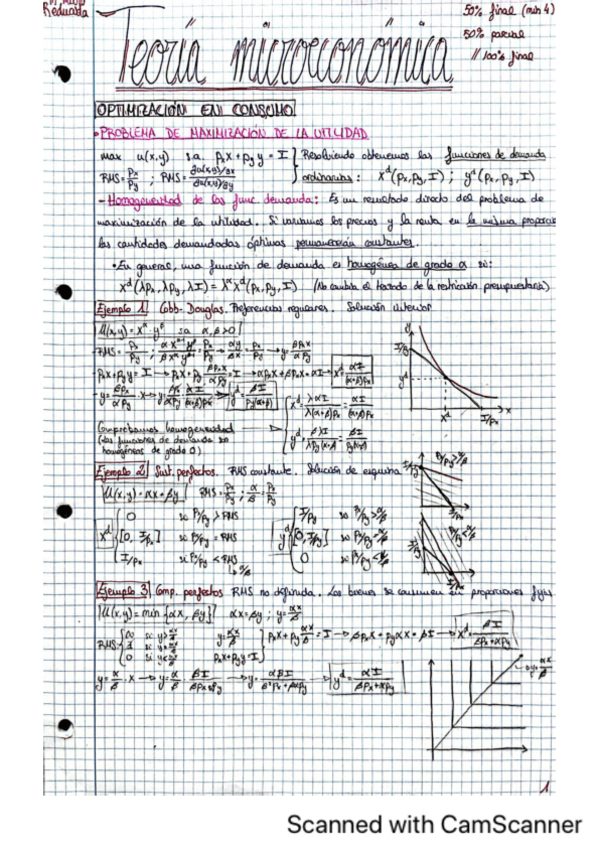 Reducida
50% final (min 4)
50% parcial
// 100% final
Teoría microeconómica
OPTIMIZACIÓN EN CONSUMO
• PROBLEMA DE MAXIMIZACIÓN DE LA UTILIDAD
max u(x,y) s.a. Pxx + Pyy = I } Resolviendo obtenemos las funciones de demanda
RMS = Px/Py ; RMS = ∂u(x,y)/∂x / ∂u(x,y)/∂y } ordinarias: x^d(Px,Py,I) ; y^d(Px,Py,I)
- Homogeneidad de las func. demanda: Es un resultado directo del problema de
maximización de la utilidad. Si variamos los precios y la renta en la misma proporción
las cantidades demandadas óptimas permanecerán constantes.
• En general, una función de demanda es homogénea de grado α si:
x^d(λPx, λPy, λI) = λ^α x^d(Px,Py,I) (No cambia el trazado de la restricción presupuestaria)
Ejemplo 1 Cobb-Douglas. Preferencias regulares. Solución interior
U(x,y) = x^α · y^β s.a α,β>0
Comprobamos homogeneidad
(las funciones de demanda son
homogéneas de grado 0)
x^d = λαI/λ(α+β)Px = αI/(α+β)Px
I/Py
y^d
x^d
I/Px
x
Ejemplo 2 Sust. perfectos. RMS constante. Solución de esquina
U(x,y) = αx + βy RMS = Px/Py ; α/β = Px/Py
x^d { 0 si Px/Py > RMS
[0, I/Px] si Px/Py = RMS
I/Px si Px/Py < RMS
y^d { I/Py si Px/Py > α/β
[0, I/Py] si Px/Py = α/β
0 si Px/Py < α/β
Ejemplo 3 Comp. perfectos RMS no definida. Los bienes se consumen en proporciones fijas
U(x,y) = min {αx, βy} αx = βy ; y = αx/β
RMS { ∞ si y > αx/β
0 si y < αx/β
y = αx/β
Pxx + Pyy = I } Pxx + Py αx/β = I → βPxx + Pyαx = βI → x^d = βI/βPx+αPy
y = α/β · x → y = α/β · βI/βPx+αPy → y = αβI/β²Px+βαPy → y^d = αI/βPx+αPy
1
Scanned with CamScanner